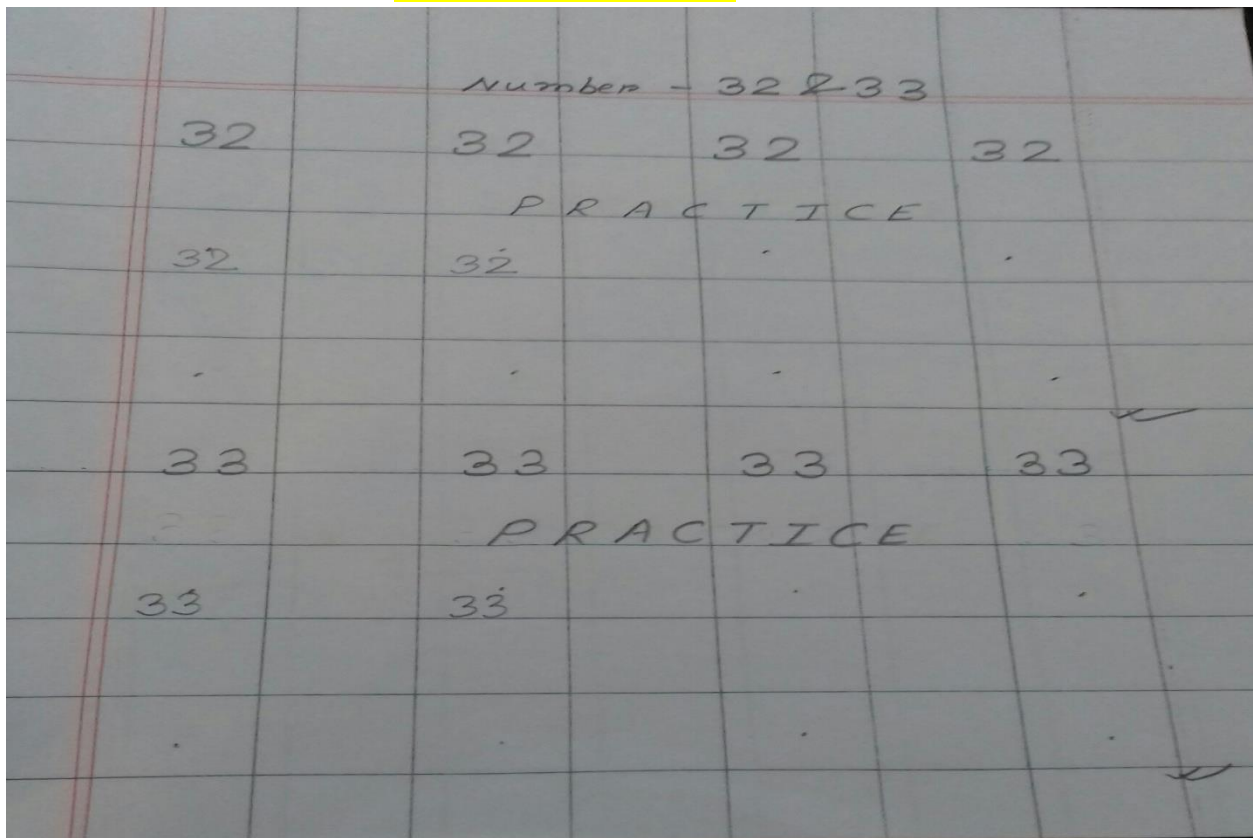 Number - 32 & 33
32 32 32 32
PRACTICE
32 32
33 33 33 33
PRACTICE
33 33